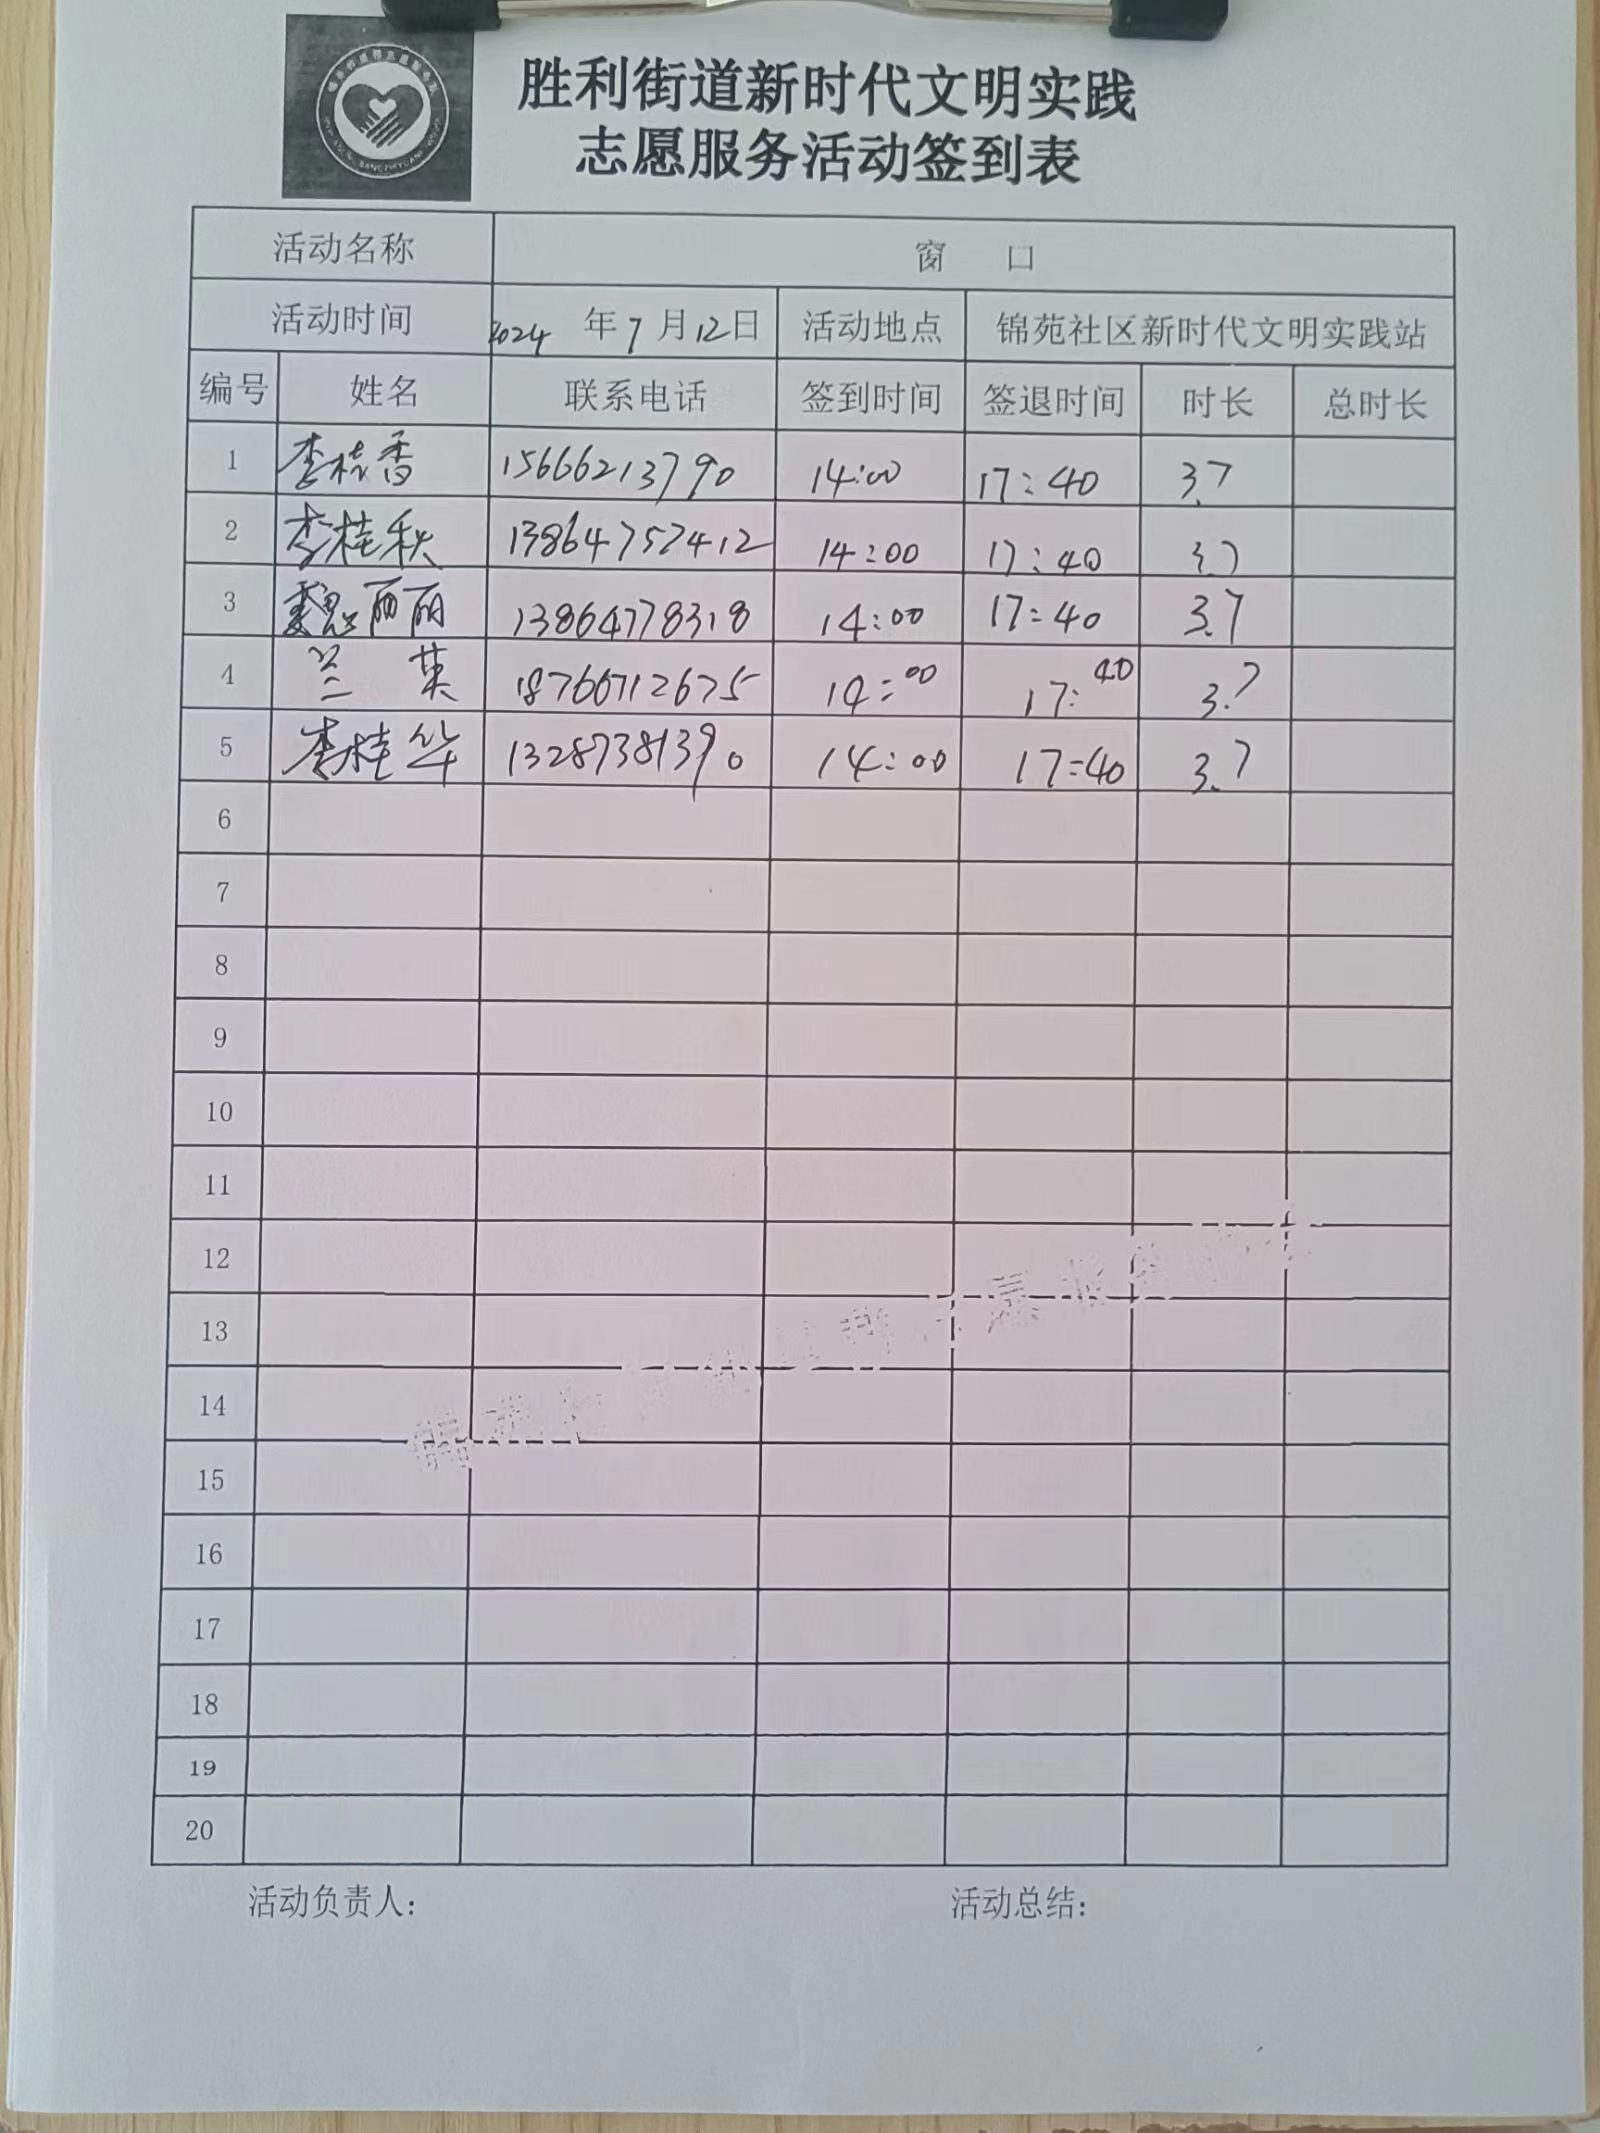 胜利街道新时代文明实践
志愿服务活动签到表
活动名称 窗 口
活动时间 2024 年 7 月 12 日 活动地点 锦苑社区新时代文明实践站
编号 姓名 联系电话 签到时间 签退时间 时长 总时长
1 李桂香 15666213790 14:00 17:40 3.7
2 李桂秋 13864757412 14:00 17:40 3.7
3 魏丽丽 13864778318 14:00 17:40 3.7
4 兰英 18766712675 14:00 17:40 3.7
5 李桂华 13287381390 14:00 17:40 3.7
6
7
8
9
10
11
12
13
14
15
16
17
18
19
20
活动负责人: 活动总结: